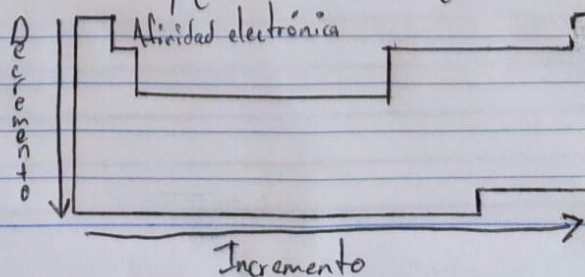 Decremento
Afinidad electrónica
Incremento